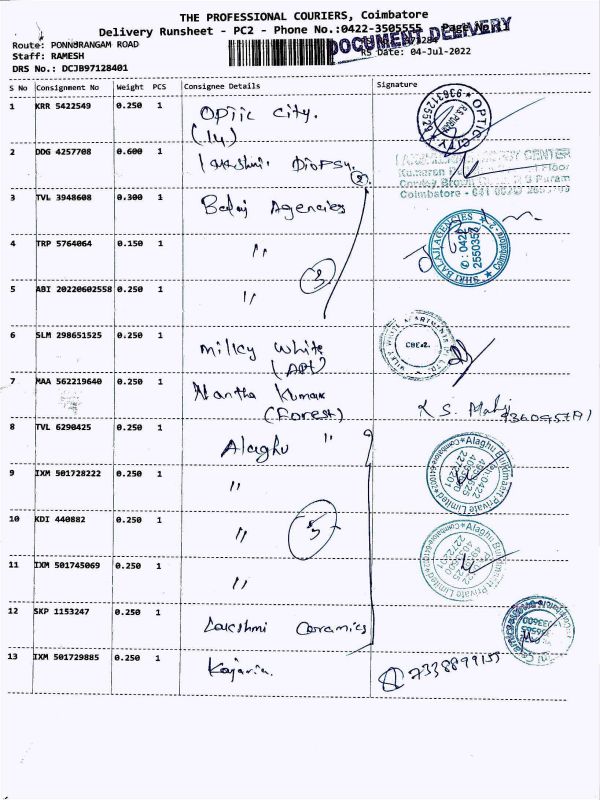 THE PROFESSIONAL COURIERS, Coimbatore
Delivery Runsheet - PC2 - Phone No.:0422-3505555 Page No
DOCUMENT DELIVERY
Route: PONNURANGAM ROAD
Staff: RAMESH
RS Date: 04-Jul-2022
DRS No.: DCJB97128401
S No Consignment No Weight PCS Consignee Details Signature
1 KRR 5422549 0.250 1 Optic City.
(14)
OPTIC CITY
R.S.PURAM
9363125529
2 DDG 4257708 0.600 1 Lakshmi
CENTER
Floor
R S Puram
Coimbatore - 641 002
3 TVL 3948608 0.300 1 Balaj Agencies
SHRI BALAJI AGENCIES
Coimbatore - 2
0422
4 TRP 5764064 0.150 1 "
(3)
5 ABI 20220602558 0.250 1 "
6 SLM 298651525 0.250 1 Milky White
(APt)
CBE-2.
7 MAA 562219640 0.250 1 Nantha Kumar
(Forest)
K S.
8 TVL 6290425 0.250 1 Alaghu "
Alaghu Buildmaart Private Limited
Coimbatore-641002
9 IXM 501728222 0.250 1 "
10 KDI 440882 0.250 1 "
5
Alaghu Buildmaart Private Limited
Coimbatore-641002
11 IXM 501745069 0.250 1 "
12 SKP 1153247 0.250 1 Lakshmi Ceramics
13 IXM 501729885 0.250 1 Kajaria.
7338899155